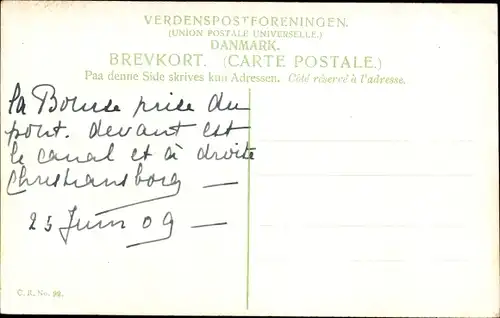 VERDENSPOSTFORENINGEN.
(UNION POSTALE UNIVERSELLE.)
DANMARK.
BREVKORT. (CARTE POSTALE.)
Paa denne Side skrives kun Adressen. Côté réservé à l'adresse.
la Bourse prise du
pont. devant est
le canal et à droite
Christiansborg —
25 Juin 09 —
C. R. No. 98.